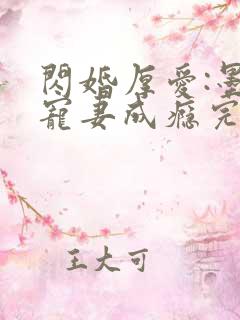 閃婚厚愛:墨
寵妻成癮完
王大可